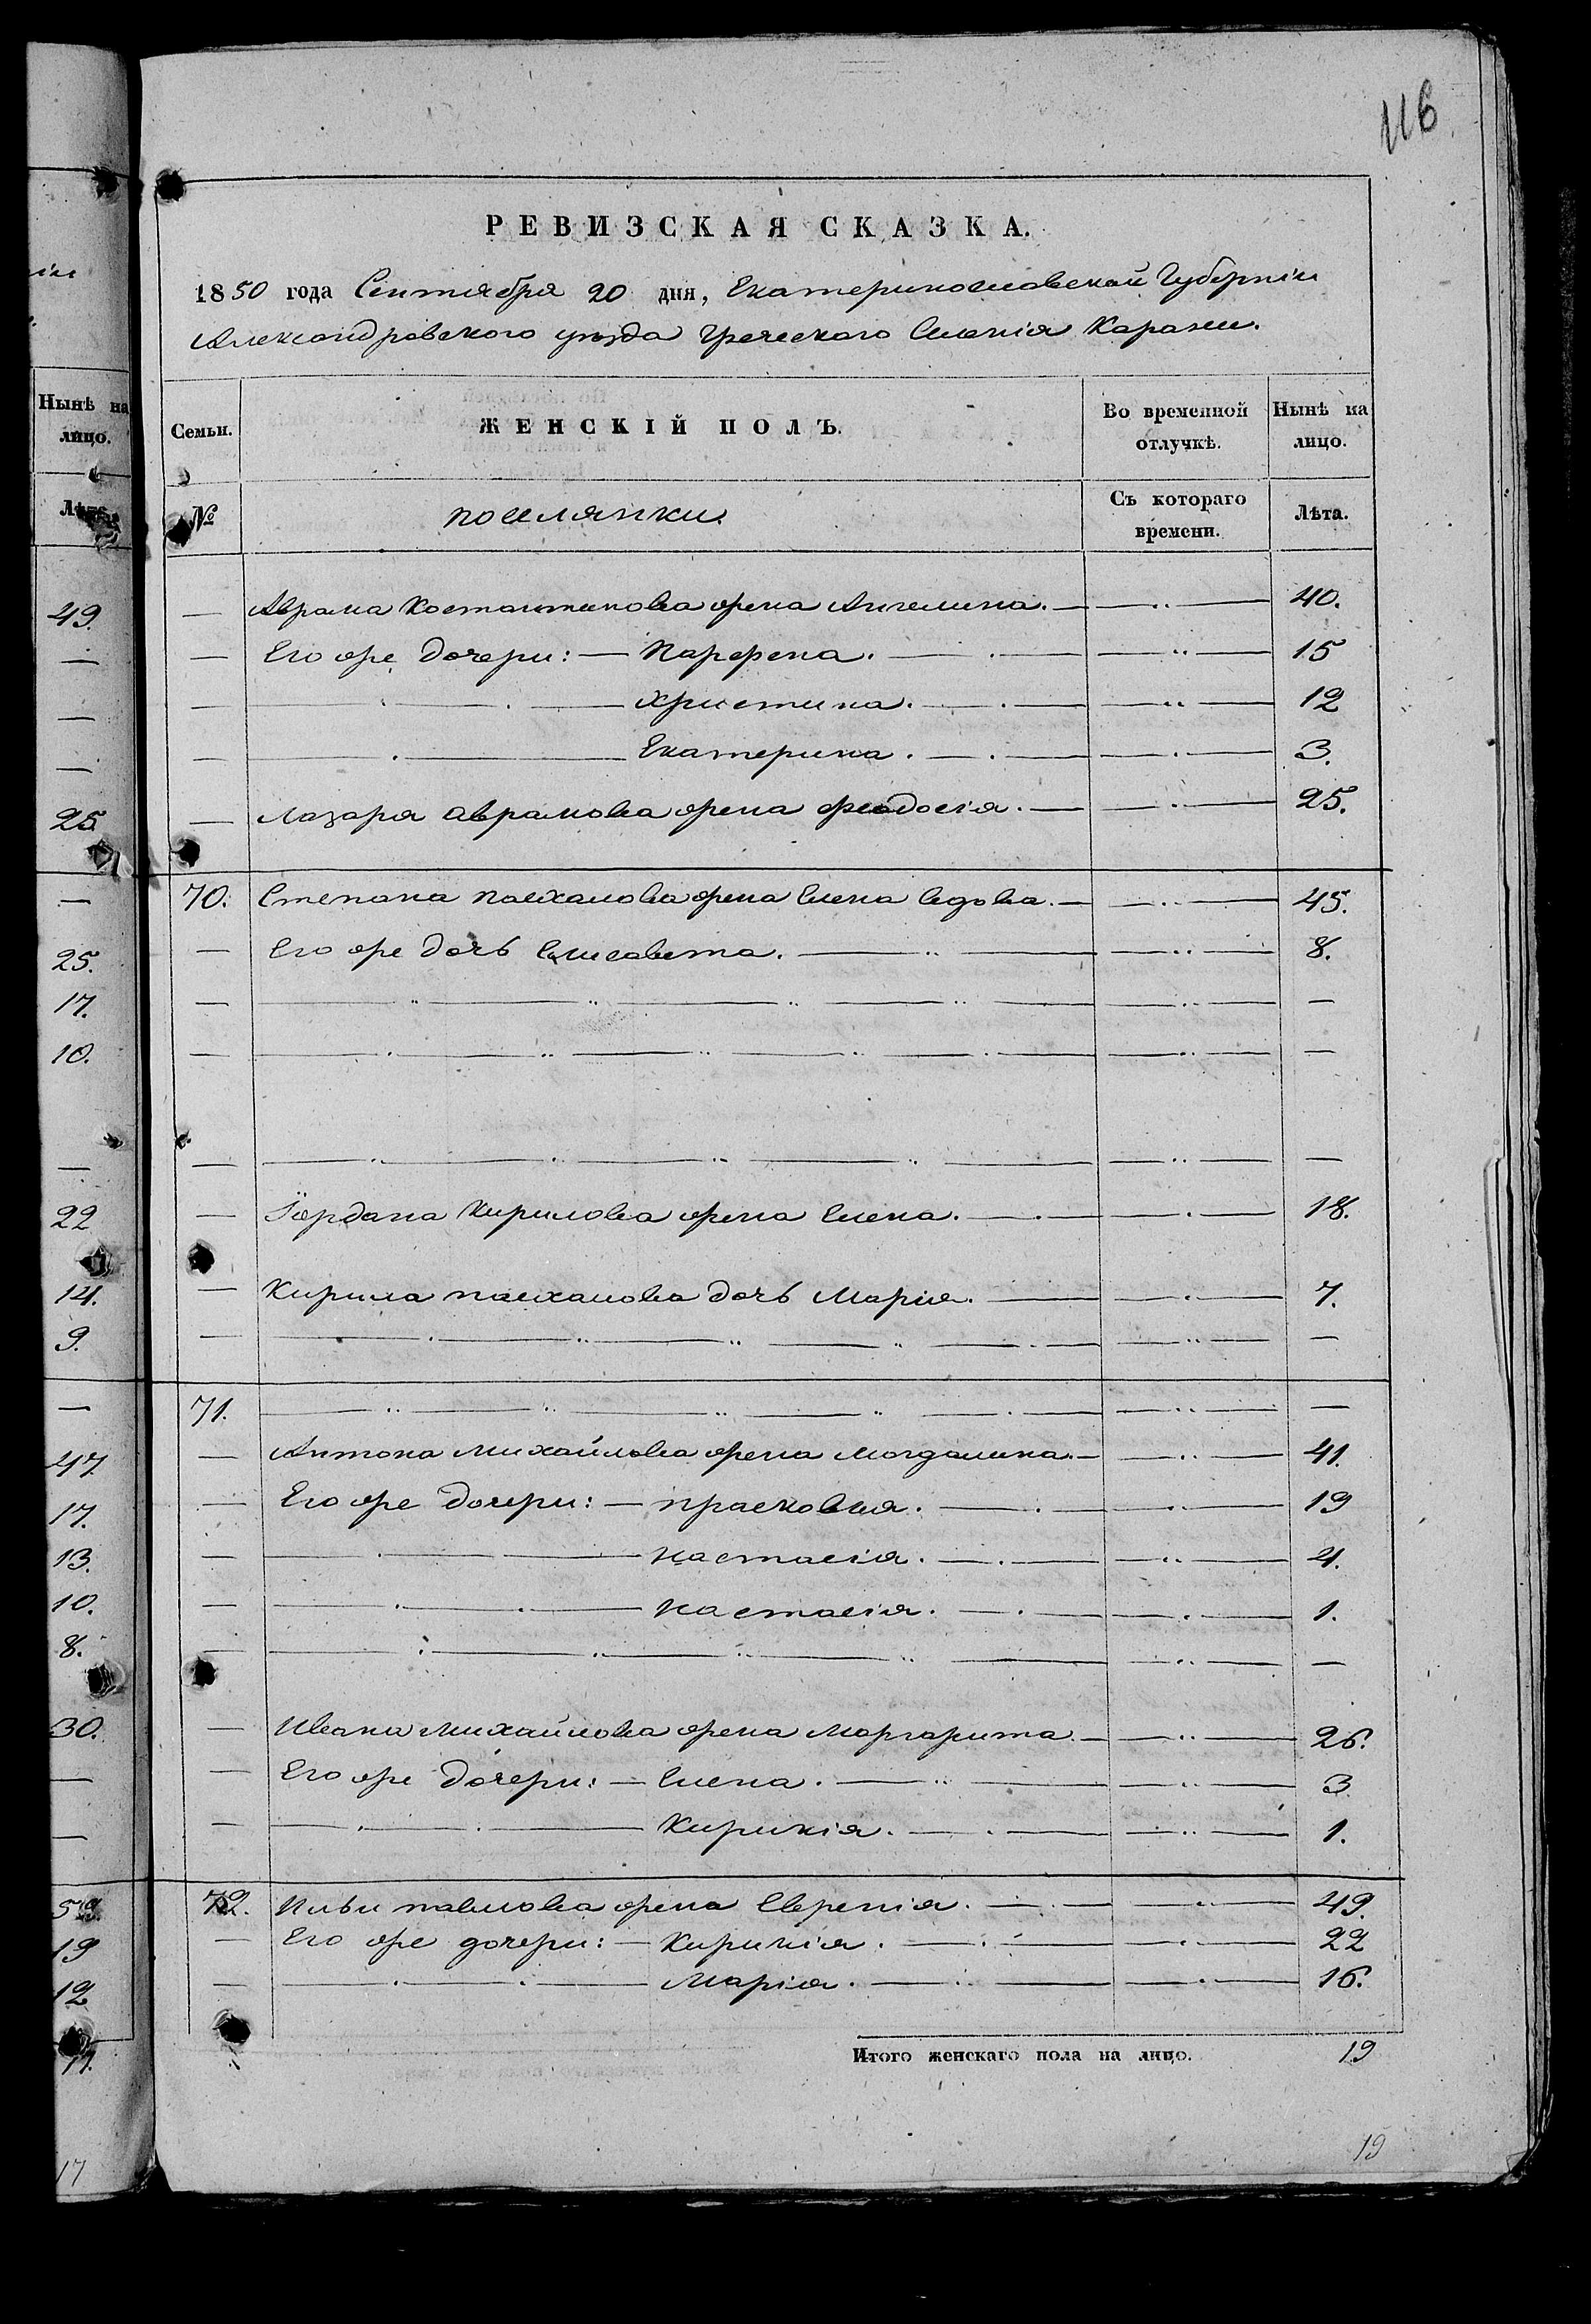 116
РЕВИЗСКАЯ СКАЗКА.
1850 года Сентября 20 дня, Екатеринославской Губерніи
Александровского уѣзда Греческаго Селенія Карани.
Семьи.
ЖЕНСКІЙ ПОЛЪ.
Во временной отлучкѣ.
Нынѣ на лицо.
№
поселянки.
Съ котораго времени.
Лѣта.
— Аврама Костантинова жена Ангелина. — 40.
— Его же дочери: — Парфена. — 15
— Христина. — 12
— Екатерина. — 3.
— Лазаря Аврамова жена Феодосія. — 25.
70. Степана пасхалова жена Елена вдова. — 45.
— Его же дочь Елисавета. — 8.
— Іордана Кирилова жена Елена. — 18.
— Кирила пасхалова дочь Марія. — 7.
71.
— Антона Михайлова жена Магдалина. — 41.
— Его же дочери: — прасковия. — 19
— настасія. — 4.
— настасія. — 1.
— Ивана Михайлова жена Маргарита. — 26.
— Его же дочери: — Елена. — 3.
— Кирикія. — 1.
72. Ильи павлова жена Евгенія. — 49.
— Его же дочери: — Кирикія. — 22
— Марія. — 16.
Итого женскаго пола на лицо. 19
19
Нынѣ на
лицо.
Лѣта.
49.
25
25.
17.
10.
22
14.
9.
47
17.
13.
10.
8.
30.
19
12
17